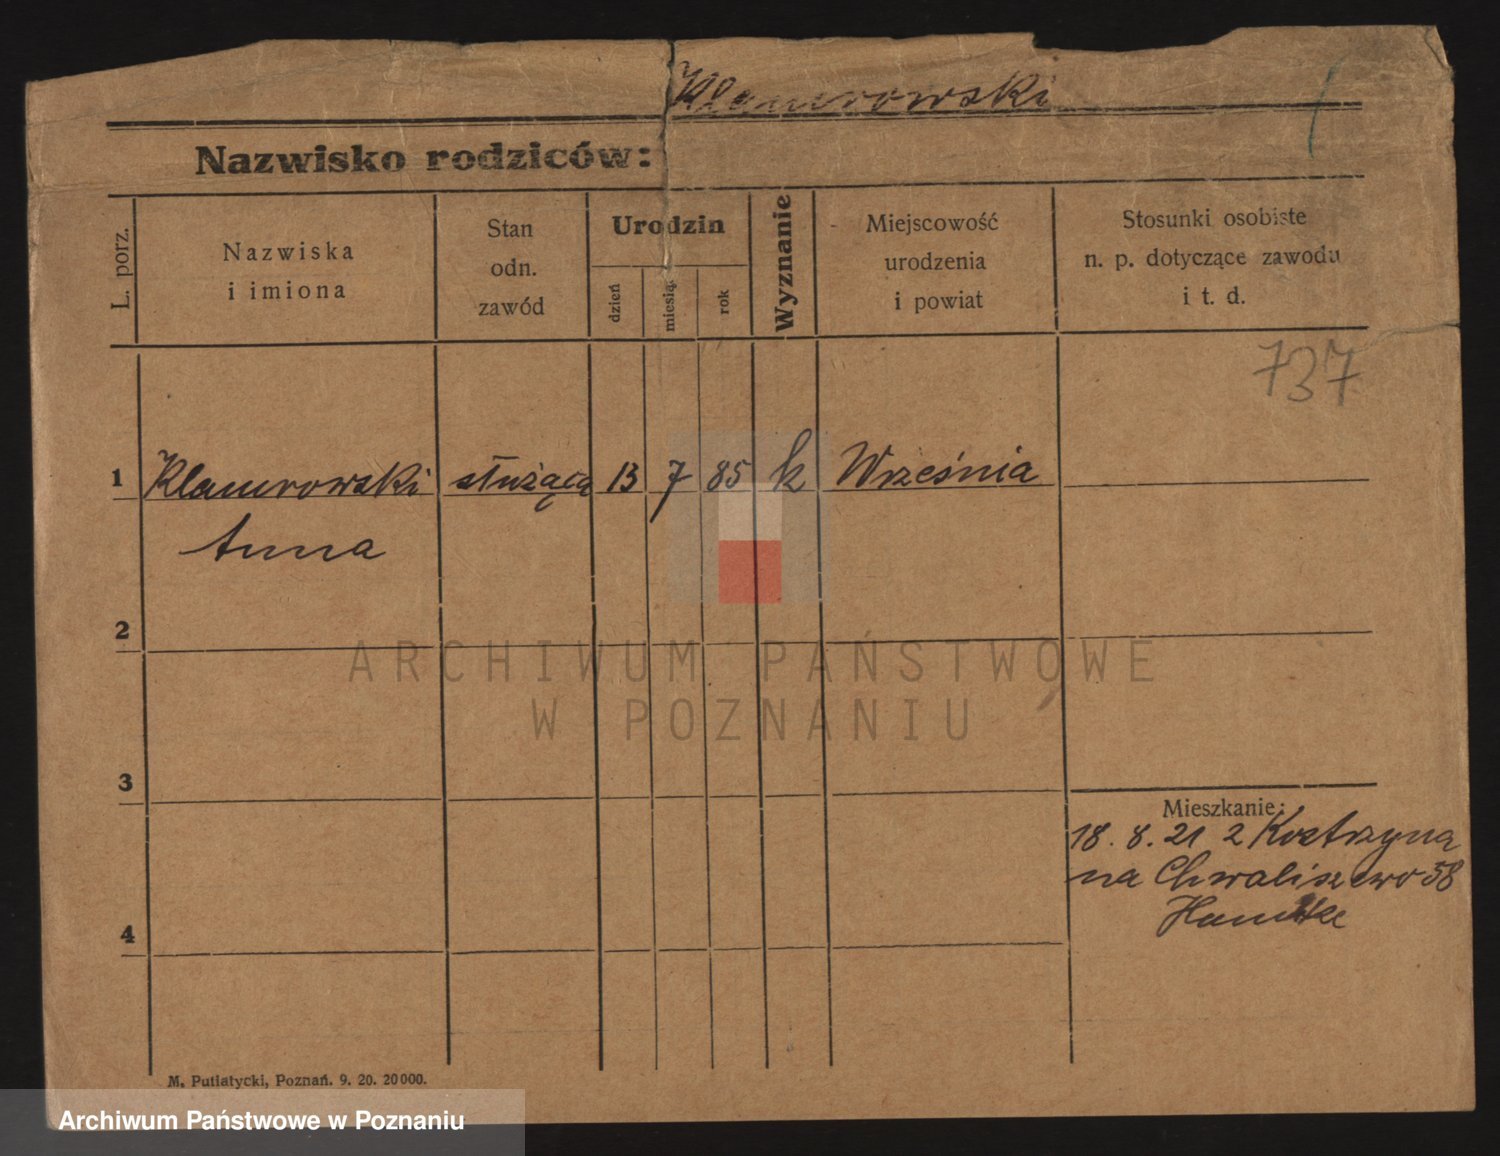 Klamrowski
Nazwisko rodziców:
L. porz.
Nazwiska
i imiona
Stan
odn.
zawód
Urodzin
dzień
miesiąc
rok
Wyznanie
Miejscowość
urodzenia
i powiat
Stosunki osobiste
n. p. dotyczące zawodu
i t. d.
737
1 Klamrowski służąca 13 7 85 k Września
Anna
2
3
Mieszkanie:
18. 8. 21 z Kostrzyna
na Chwaliszewo 58
4
M. Putiatycki, Poznań. 9. 20. 20 000.
ARCHIWUM PAŃSTWOWE
W POZNANIU
Archiwum Państwowe w Poznaniu